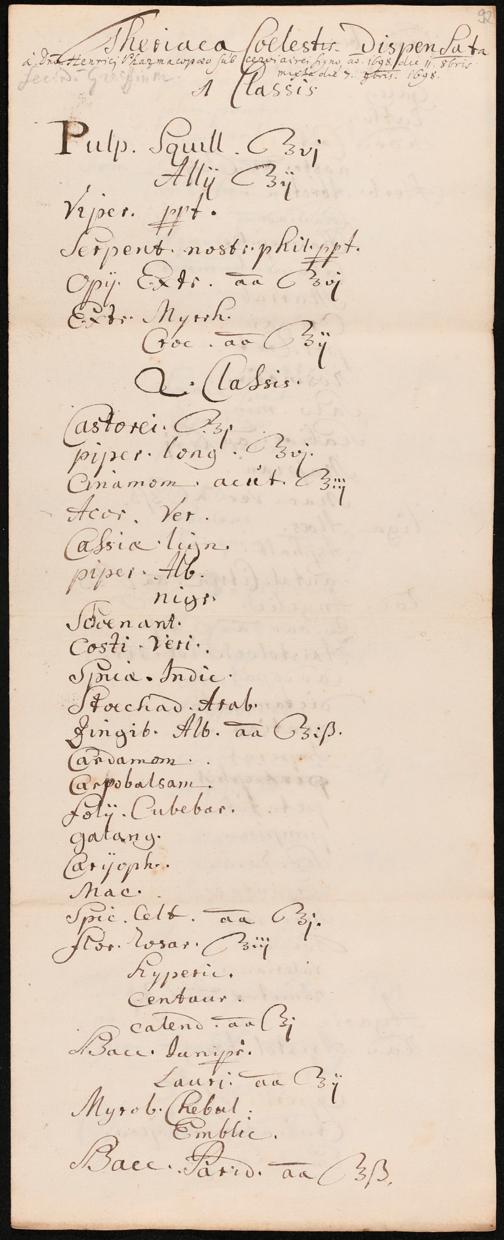 92
Theriaca Coelestis Dispensata
à Dno Henrici Pharmacopoeo sub cervi aurei signo, ao. 1698 die 11. 8bris
mixta die 3. 9bris. 1698.
1 Classis
Pulp. Squill. ℥vj
Allij ℥ij
Viper. ppt.
Serpent. nostr. phil. ppt.
Opij. Extr. aa ℥vj
Extr. Myrrh.
Croc. aa ℥ij
2. Classis.
Castorei. ℥j
piper. long. ℥vj.
Cinamom. acut. ℥iij
Acor. Ver.
Cassiæ lign.
piper. Alb.
nigr.
Schoenant.
Costi. Veri.
Spicæ. Indic.
Stoechad. Arab.
Zingib. Alb. aa ℥iß.
Cardamom.
Carpobalsam.
folij. Cubebar.
Galang.
Caryoph.
Mac.
Spic. Celt. aa ℥j.
flor. rosar. ℥iij
hyperic.
Centaur.
calend. aa ℥j
Bacc. Junipr.
Lauri. aa ℥ij
Myrob. Chebul.
Emblic.
Bacc. Parid. aa ℥ß.